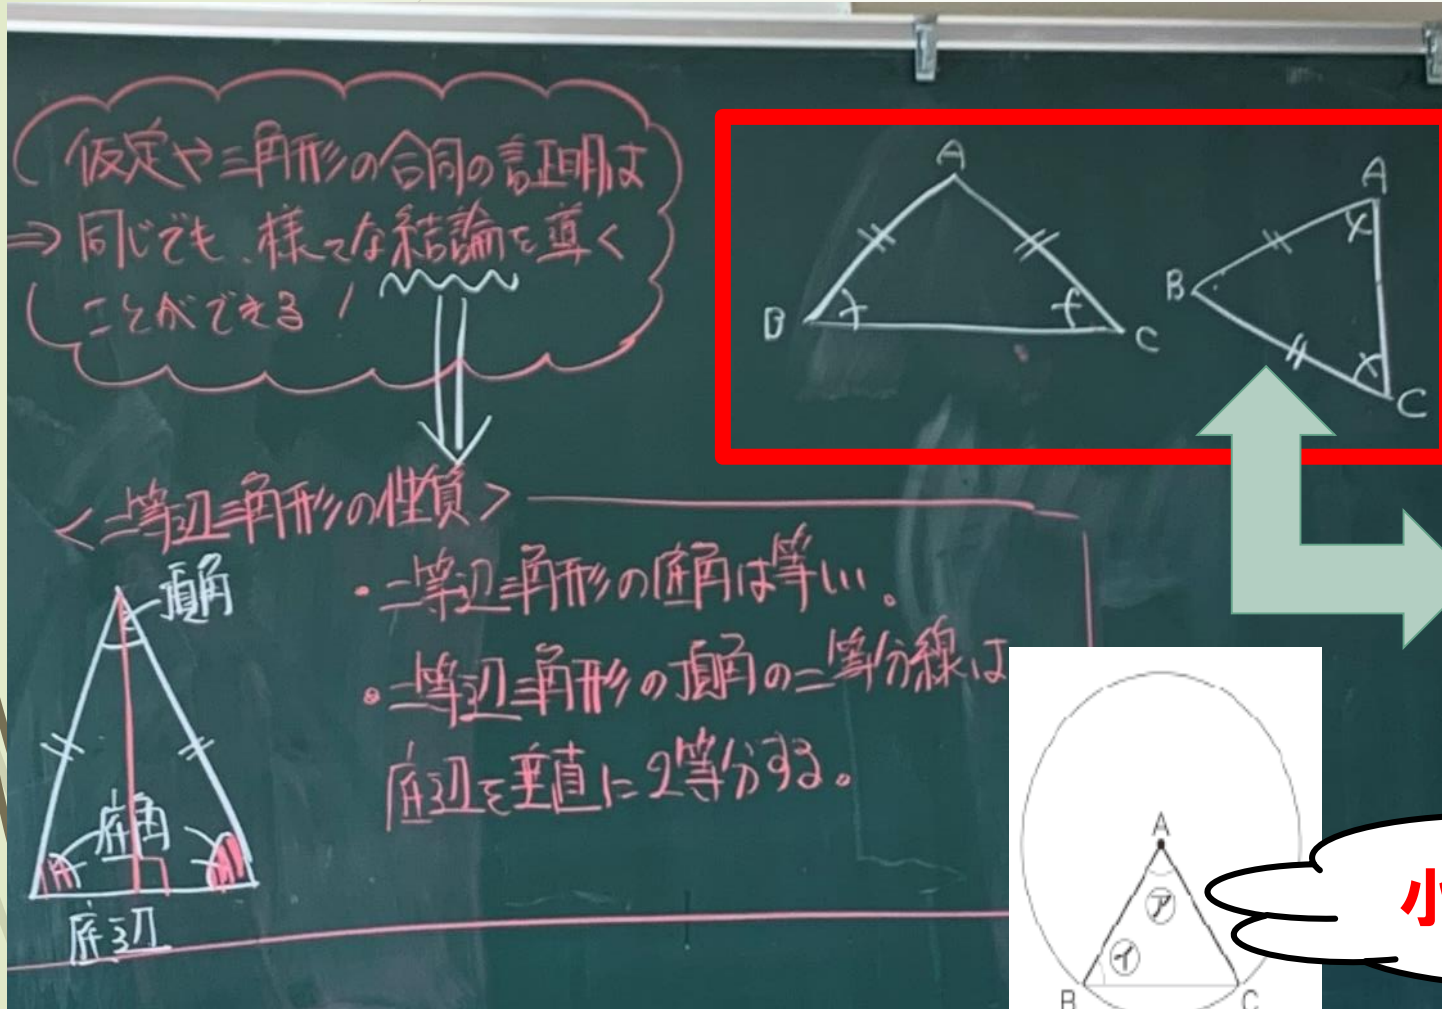 仮定や三角形の合同の証明は
⇒ 同じでも、様々な結論を導く
ことができる!
A
B
C
A
B
C
<二等辺三角形の性質>
頂角
・二等辺三角形の底角は等しい。
・二等辺三角形の頂角の二等分線は
底辺を垂直に2等分する。
底角
底辺
A
ア
イ
B
C
小